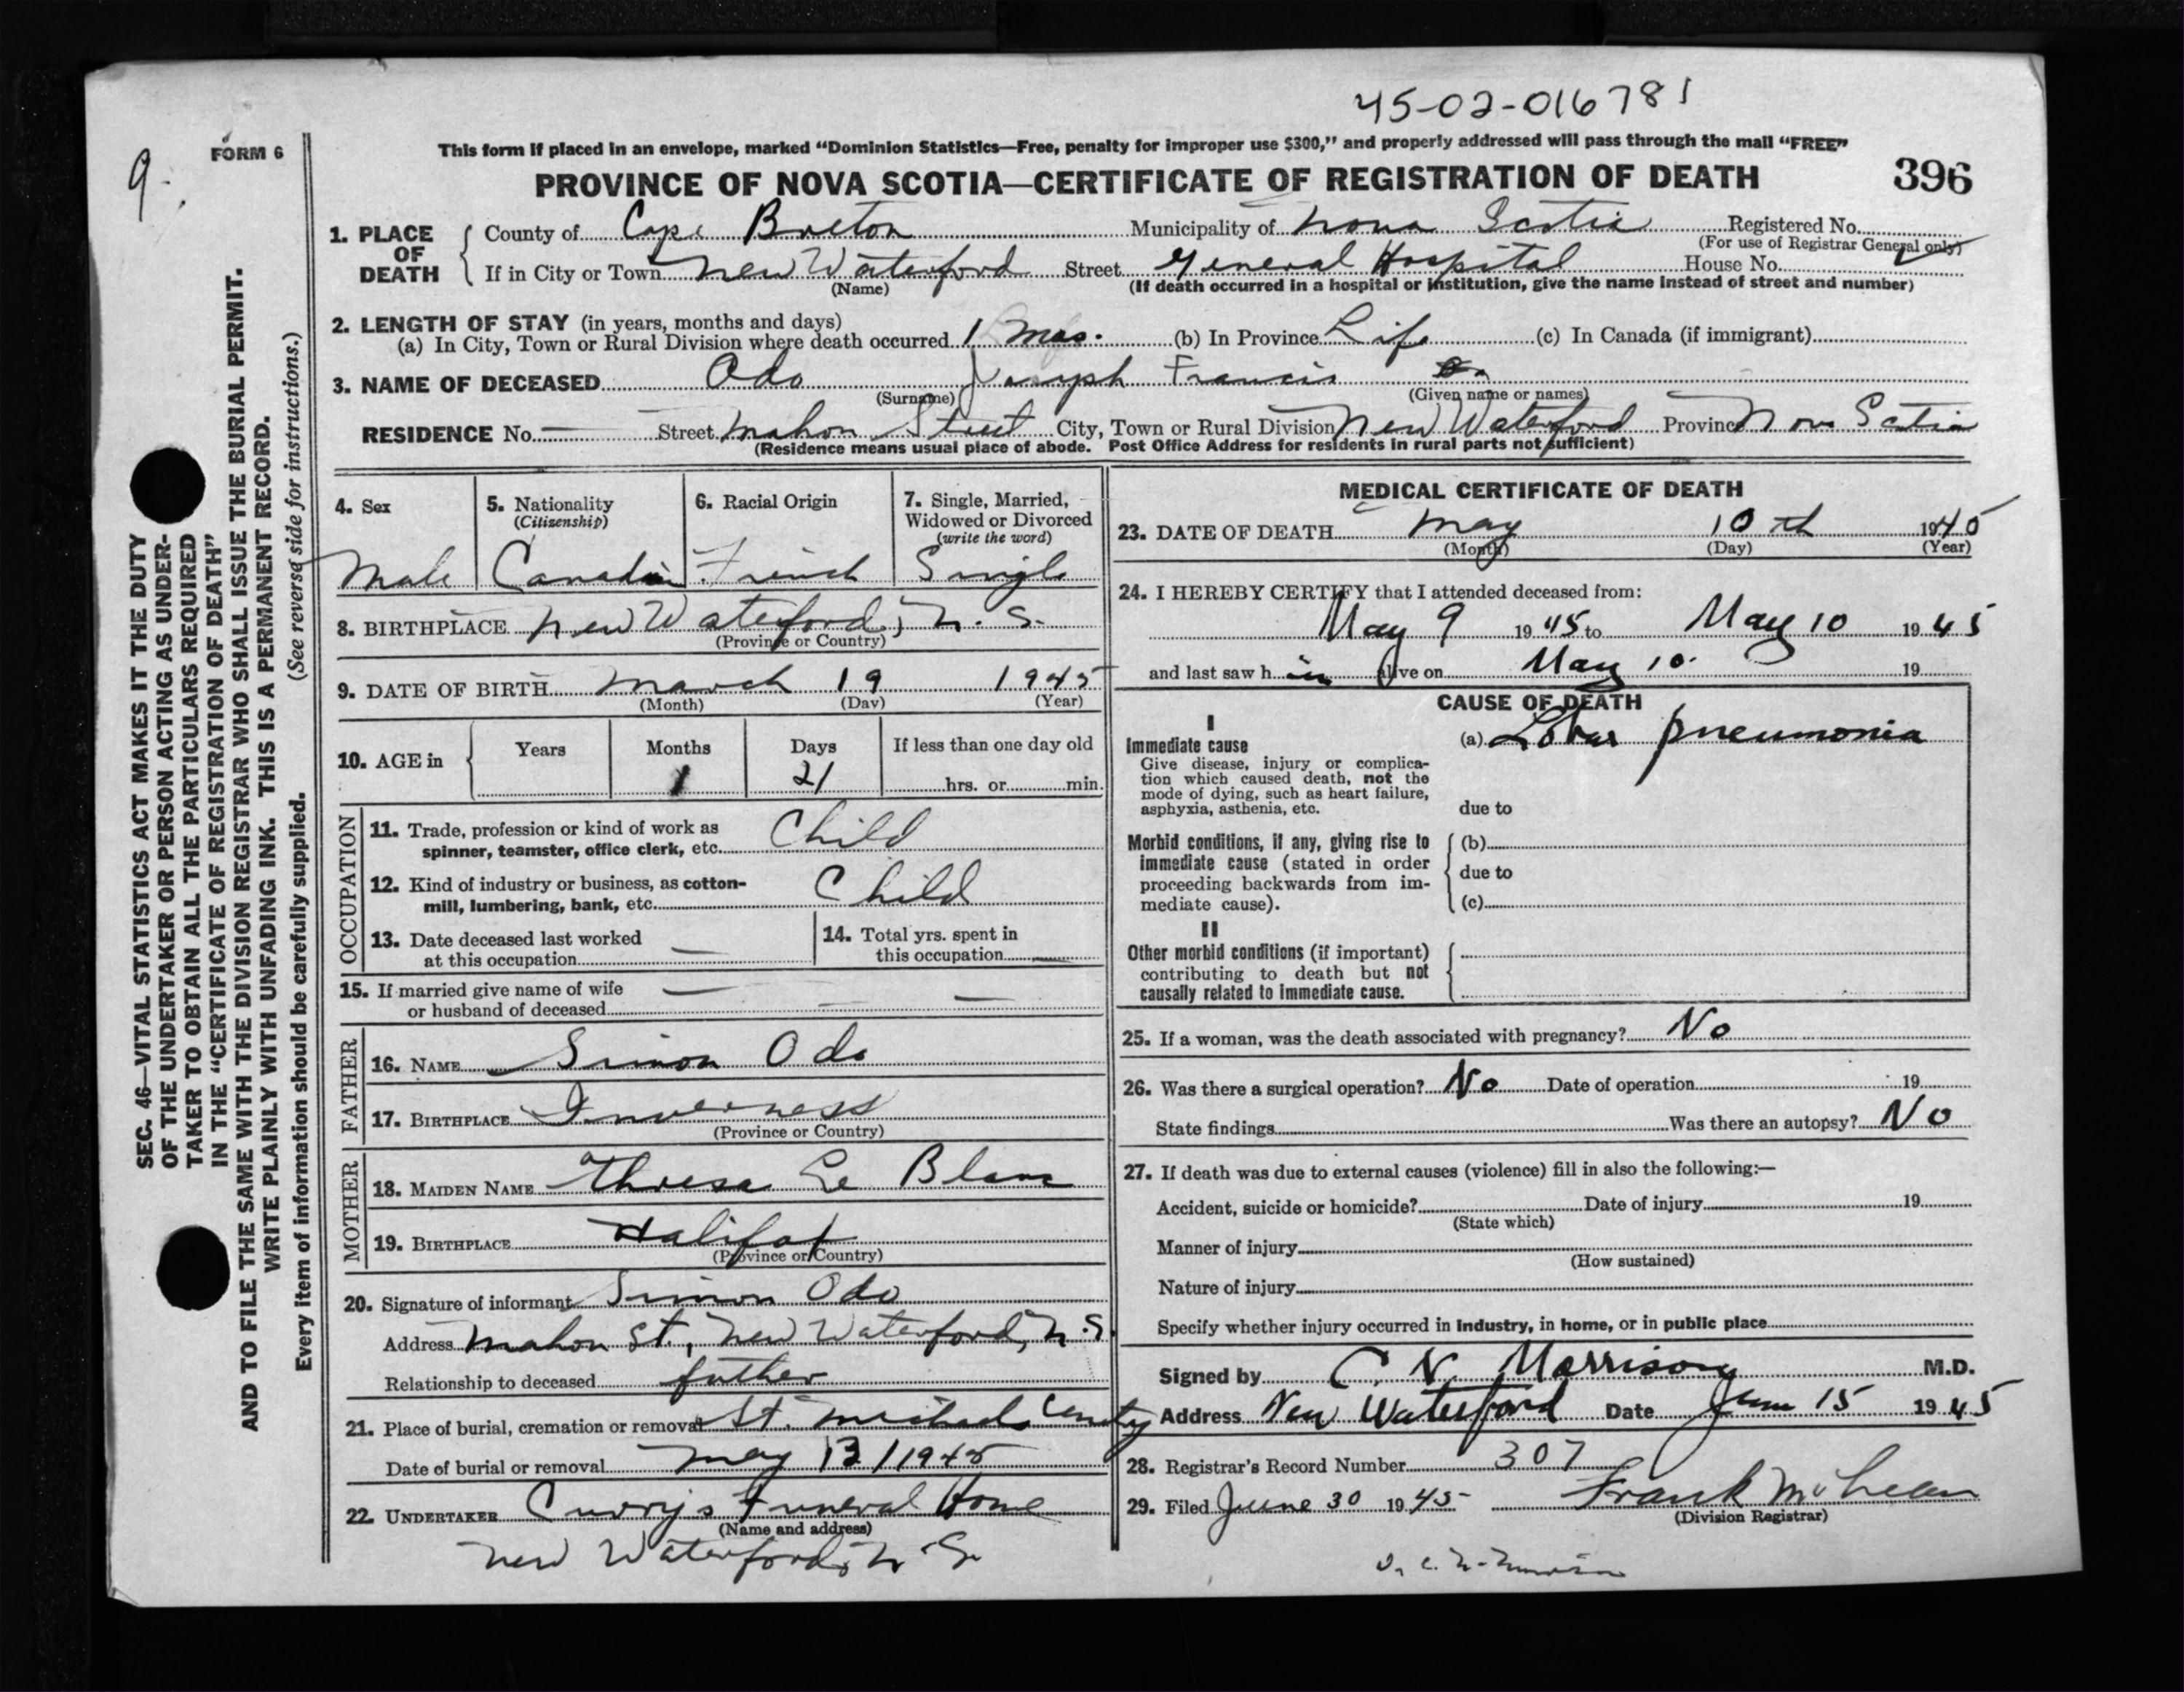 45-02-016781
9.
FORM 6
This form if placed in an envelope, marked “Dominion Statistics—Free, penalty for improper use $300,” and properly addressed will pass through the mail “FREE”
PROVINCE OF NOVA SCOTIA—CERTIFICATE OF REGISTRATION OF DEATH 396
1. PLACE OF DEATH
County of Cape Breton Municipality of Nova Scotia Registered No.
(For use of Registrar General only)
If in City or Town New Waterford Street General Hospital House No.
(Name) (If death occurred in a hospital or institution, give the name instead of street and number)
2. LENGTH OF STAY (in years, months and days)
(a) In City, Town or Rural Division where death occurred 1 mos. (b) In Province Life (c) In Canada (if immigrant)
3. NAME OF DECEASED Odo Joseph Francis
(Surname) (Given name or names)
RESIDENCE No. — Street Mahon Street City, Town or Rural Division New Waterford Province Nova Scotia
(Residence means usual place of abode. Post Office Address for residents in rural parts not sufficient)
SEC. 46—VITAL STATISTICS ACT MAKES IT THE DUTY
OF THE UNDERTAKER OR PERSON ACTING AS UNDER-
TAKER TO OBTAIN ALL THE PARTICULARS REQUIRED
IN THE “CERTIFICATE OF REGISTRATION OF DEATH”
AND TO FILE THE SAME WITH THE DIVISION REGISTRAR WHO SHALL ISSUE THE BURIAL PERMIT.
WRITE PLAINLY WITH UNFADING INK. THIS IS A PERMANENT RECORD.
Every item of information should be carefully supplied. (See reverse side for instructions.)
4. Sex 5. Nationality (Citizenship) 6. Racial Origin 7. Single, Married, Widowed or Divorced (write the word)
Male Canadian French Single
8. BIRTHPLACE New Waterford, N.S.
(Province or Country)
9. DATE OF BIRTH March 19 1945
(Month) (Day) (Year)
10. AGE in Years Months Days If less than one day old
1 21 hrs. or min.
OCCUPATION
11. Trade, profession or kind of work as
spinner, teamster, office clerk, etc. Child
12. Kind of industry or business, as cotton-
mill, lumbering, bank, etc. Child
13. Date deceased last worked
at this occupation —
14. Total yrs. spent in
this occupation —
15. If married give name of wife —
or husband of deceased — —
FATHER
16. NAME Simon Odo
17. BIRTHPLACE Inverness
(Province or Country)
MOTHER
18. MAIDEN NAME Thresa Le Blanc
19. BIRTHPLACE Halifax
(Province or Country)
20. Signature of informant Simon Odo
Address Mahon St., New Waterford, N.S.
Relationship to deceased father
21. Place of burial, cremation or removal St. Michaels Cemetry
Date of burial or removal May 12/1945
22. UNDERTAKER Curry's Funeral Home
(Name and address)
New Waterford, N.S.
MEDICAL CERTIFICATE OF DEATH
23. DATE OF DEATH May 10th 1945
(Month) (Day) (Year)
24. I HEREBY CERTIFY that I attended deceased from:
May 9 1945 to May 10 1945
and last saw h im alive on May 10. 19
CAUSE OF DEATH
I
Immediate cause (a) Lobar pneumonia
Give disease, injury or complica-
tion which caused death, not the
mode of dying, such as heart failure,
asphyxia, asthenia, etc. due to
Morbid conditions, if any, giving rise to (b)
immediate cause (stated in order
proceeding backwards from im- due to
mediate cause). (c)
II
Other morbid conditions (if important)
contributing to death but not
causally related to immediate cause.
25. If a woman, was the death associated with pregnancy? No
26. Was there a surgical operation? No Date of operation 19
State findings Was there an autopsy? No
27. If death was due to external causes (violence) fill in also the following:—
Accident, suicide or homicide? Date of injury 19
(State which)
Manner of injury
(How sustained)
Nature of injury
Specify whether injury occurred in industry, in home, or in public place
Signed by C. N. Morrison M.D.
Address New Waterford Date June 15 1945
28. Registrar's Record Number 307
29. Filed June 30 1945 Frank McLean
(Division Registrar)